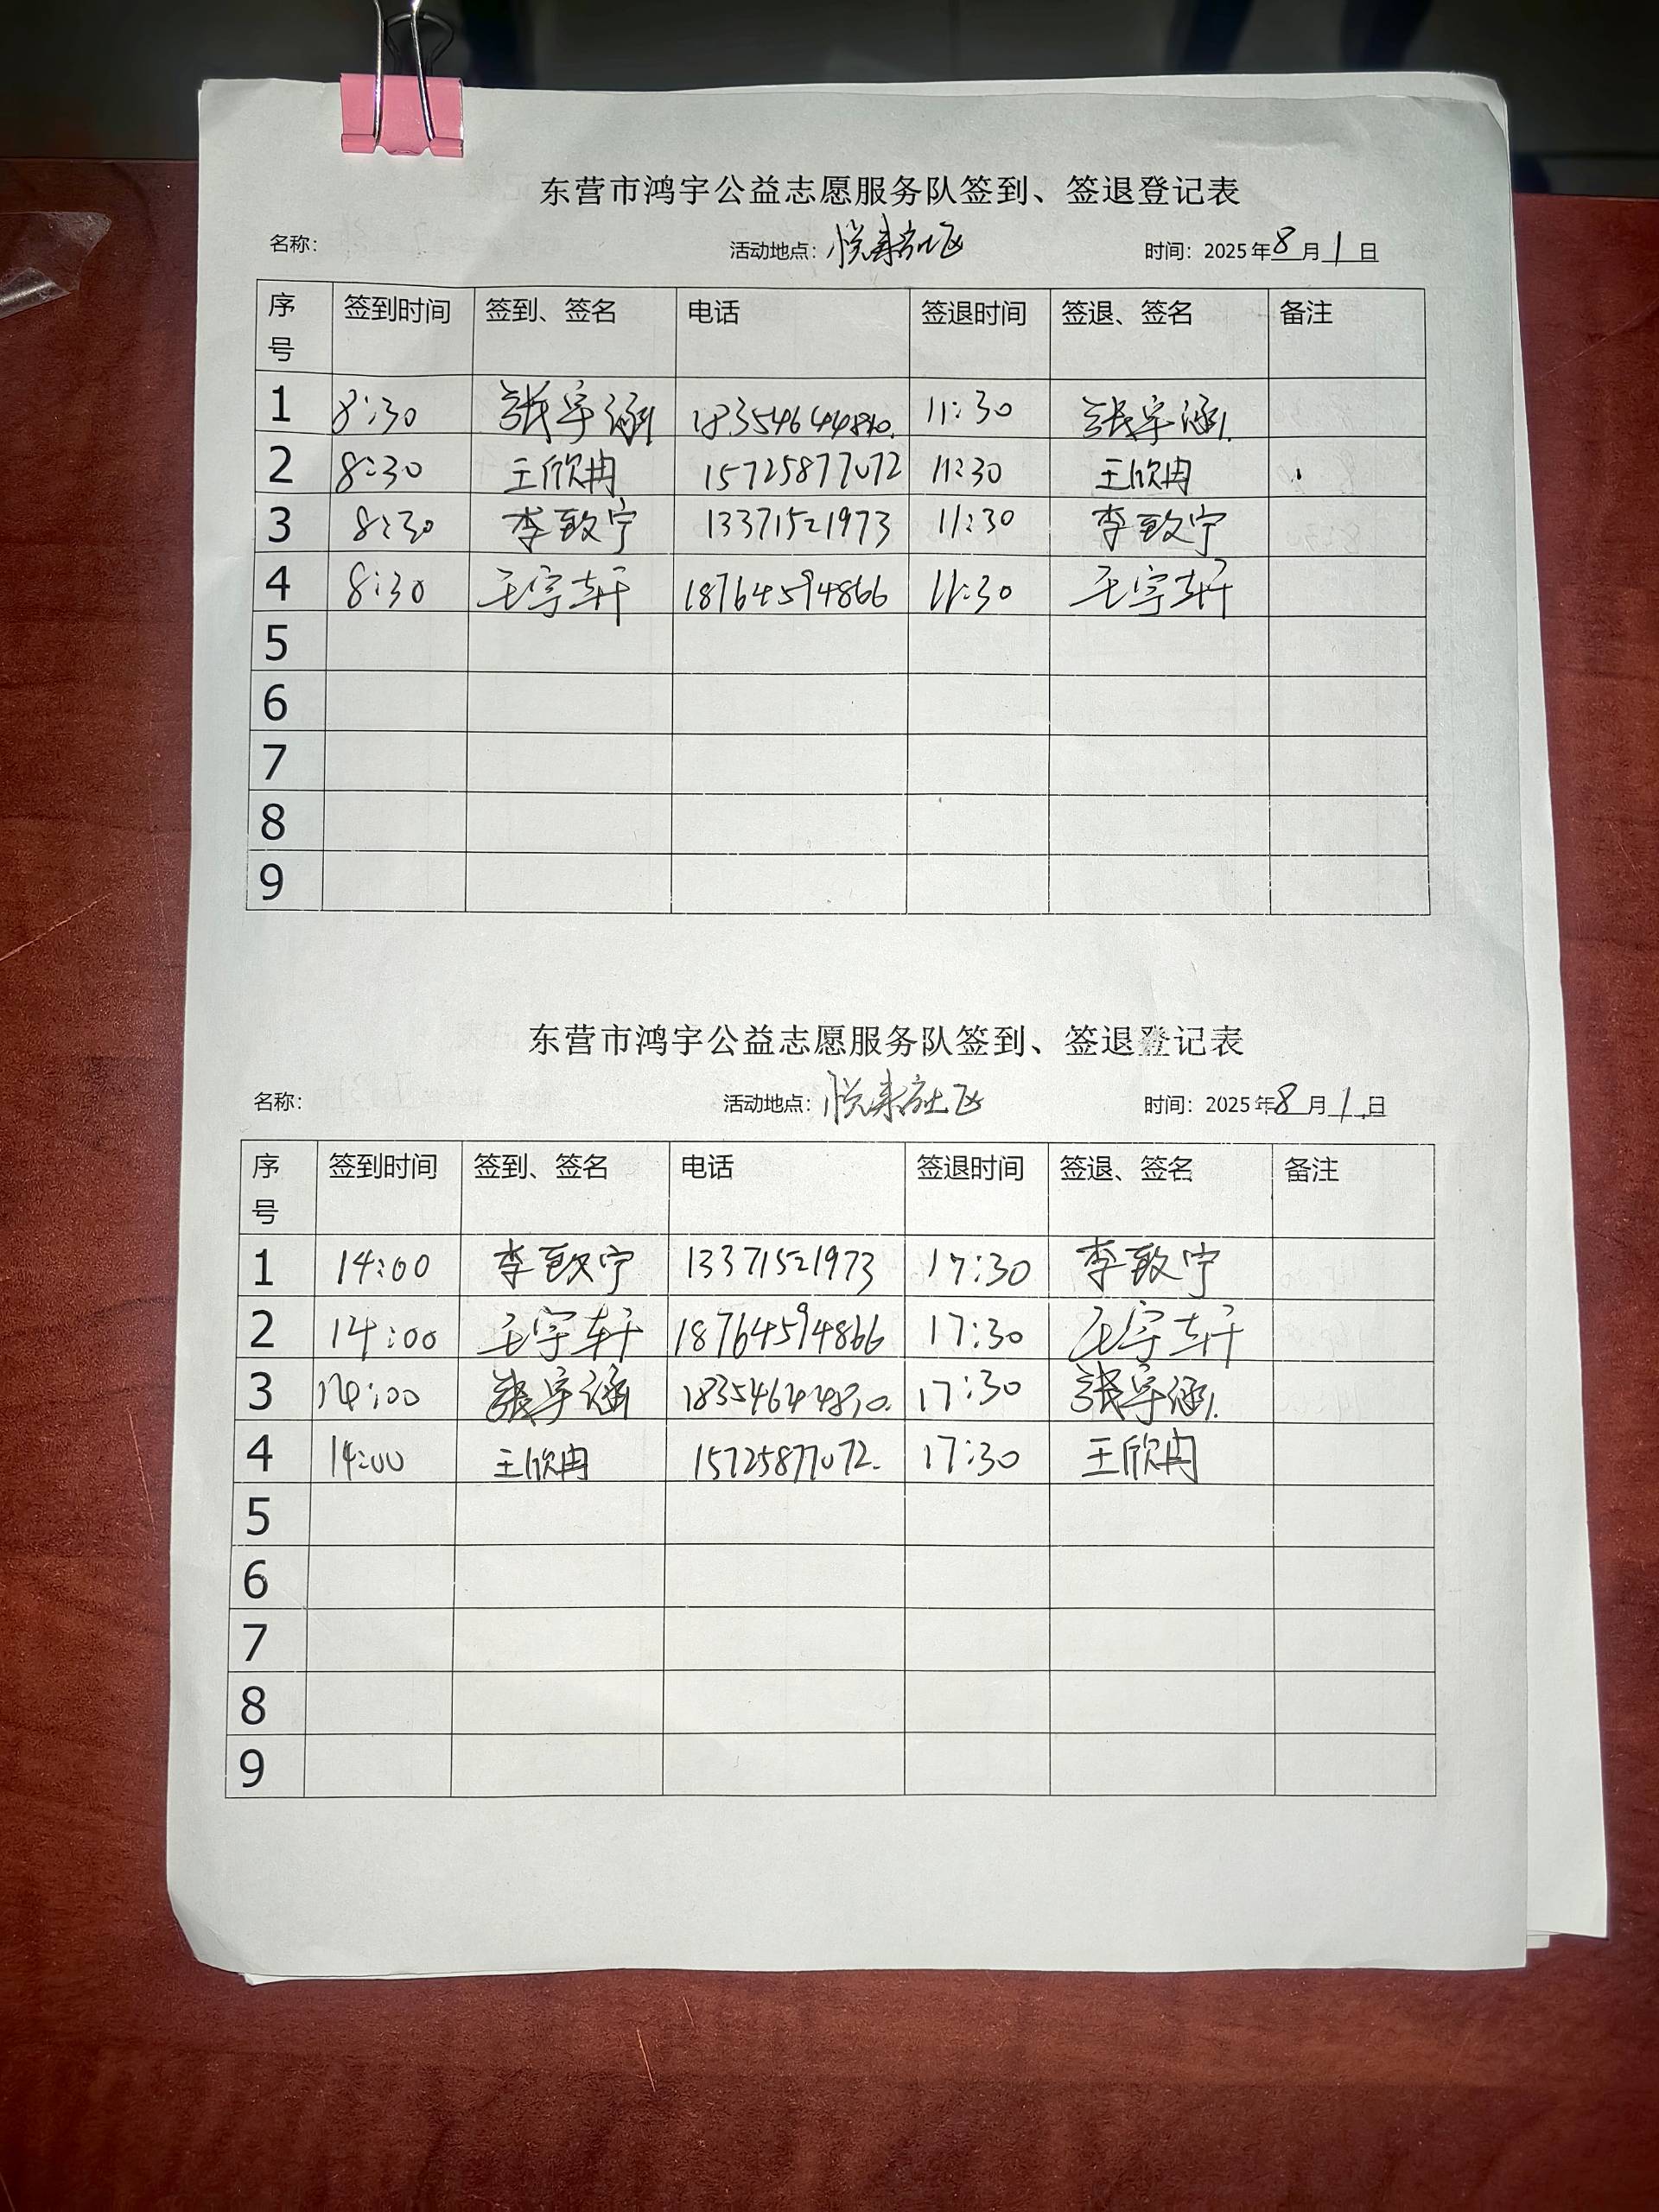 东营市鸿宇公益志愿服务队签到、签退登记表
名称: 活动地点: 悦来社区 时间: 2025年8月1日
序号 签到时间 签到、签名 电话 签退时间 签退、签名 备注
1 8:30 张宇涵 18354644810. 11:30 张宇涵.
2 8:30 王欣冉 15725877072 11:30 王欣冉
3 8:30 李致宁 13371521973 11:30 李致宁
4 8:30 王宇轩 18764594866 11:30 王宇轩
5
6
7
8
9
东营市鸿宇公益志愿服务队签到、签退登记表
名称: 活动地点: 悦来社区 时间: 2025年8月1日
序号 签到时间 签到、签名 电话 签退时间 签退、签名 备注
1 14:00 李致宁 13371521973 17:30 李致宁
2 14:00 王宇轩 18764594866 17:30 王宇轩
3 14:00 张宇涵 18354644810. 17:30 张宇涵.
4 14:00 王欣冉 15725877072. 17:30 王欣冉
5
6
7
8
9